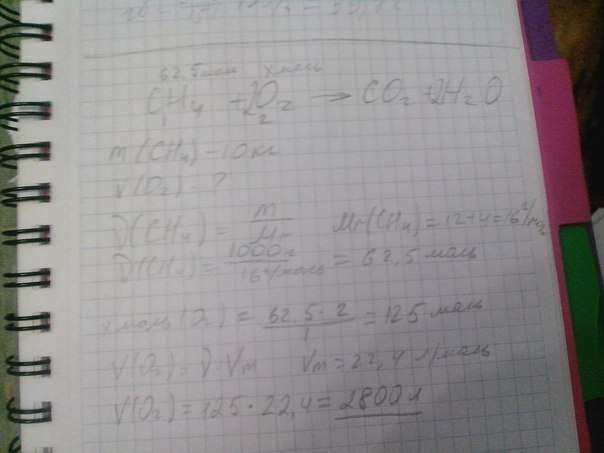 62,5моль x моль
CH4 + 2O2 → CO2 + 2H2O
1 2
m(CH4) - 10 кг
V(O2) - ?
ν(CH4) = m/Mr Mr(CH4) = 12+4=16г/моль
ν(CH4) = 1000г/16г/моль = 62,5 моль
x моль (O2) = 62,5·2/1 = 125 моль
V(O2) = ν·Vm Vm = 22,4 л/моль
V(O2) = 125·22,4 = 2800л